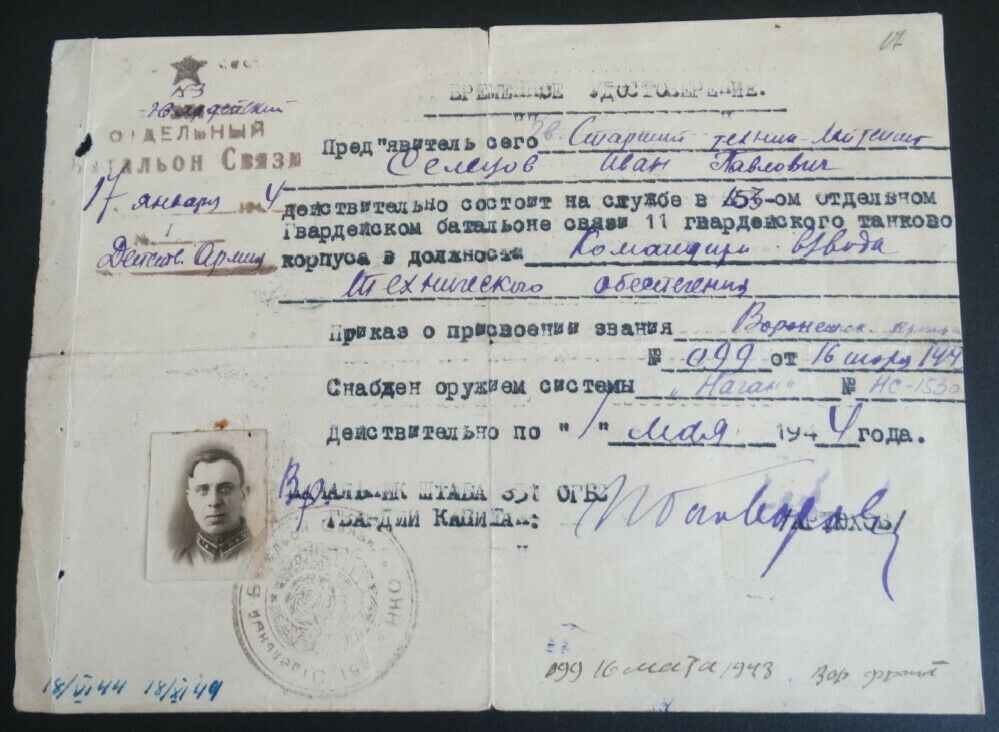 17
СССР
153
Гвардейский
ОТДЕЛЬНЫЙ
Батальон Связи
17 января 4
№ 1
Действ. Армия
ВРЕМЕННОЕ УДОСТОВЕРЕНИЕ.
Пред"явитель сего Гв. Старший техник-лейтенант
Селезов Иван Павлович
действительно состоит на службе в 153-ом отдельном
Гвардейском батальоне связи 11 гвардейского танково
корпуса в должности Командира взвода
технического обеспечения
Приказ о присвоении звания Воронежск.
№ 099 от 16
Снабден оружием системы "Наган" № НС-1530
Действительно по "1" мая 1944 года.
Вр. НАЧАЛЬНИК ШТАБА
ГВАРДИИ КАПИТАН:
Отдельный Батальон Связи * НКО *
099 16 марта 1943 Вор фронт